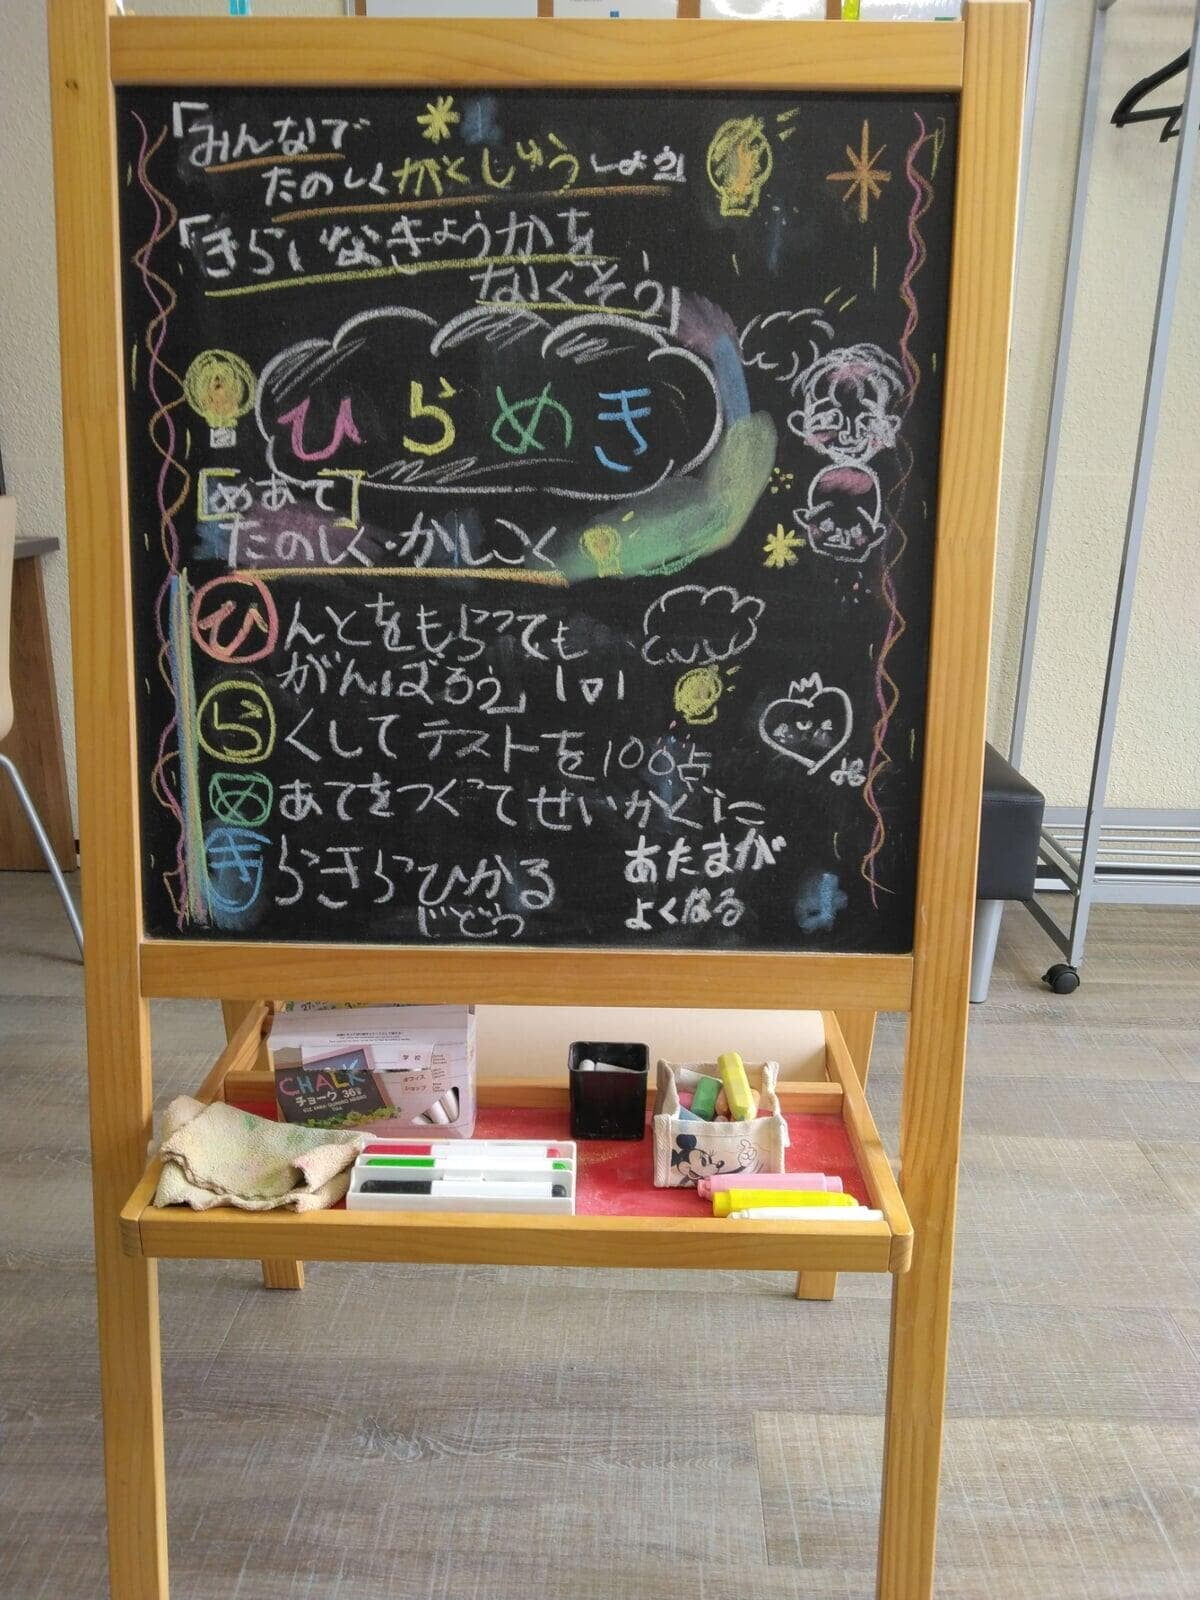 「みんなで
たのしくがくしゅうしよう」
「きらいなきょうかを
なくそう」
ひらめき
[めあて]
たのしく・かしこく
ひんとをもらっても
がんばろう」
らくしてテストを100点
めあてをつくってせいかくに
きらきらひかる
じどう
あたまが
よくなる
CHALK
チョーク 36
学校
オフィス
ショップ